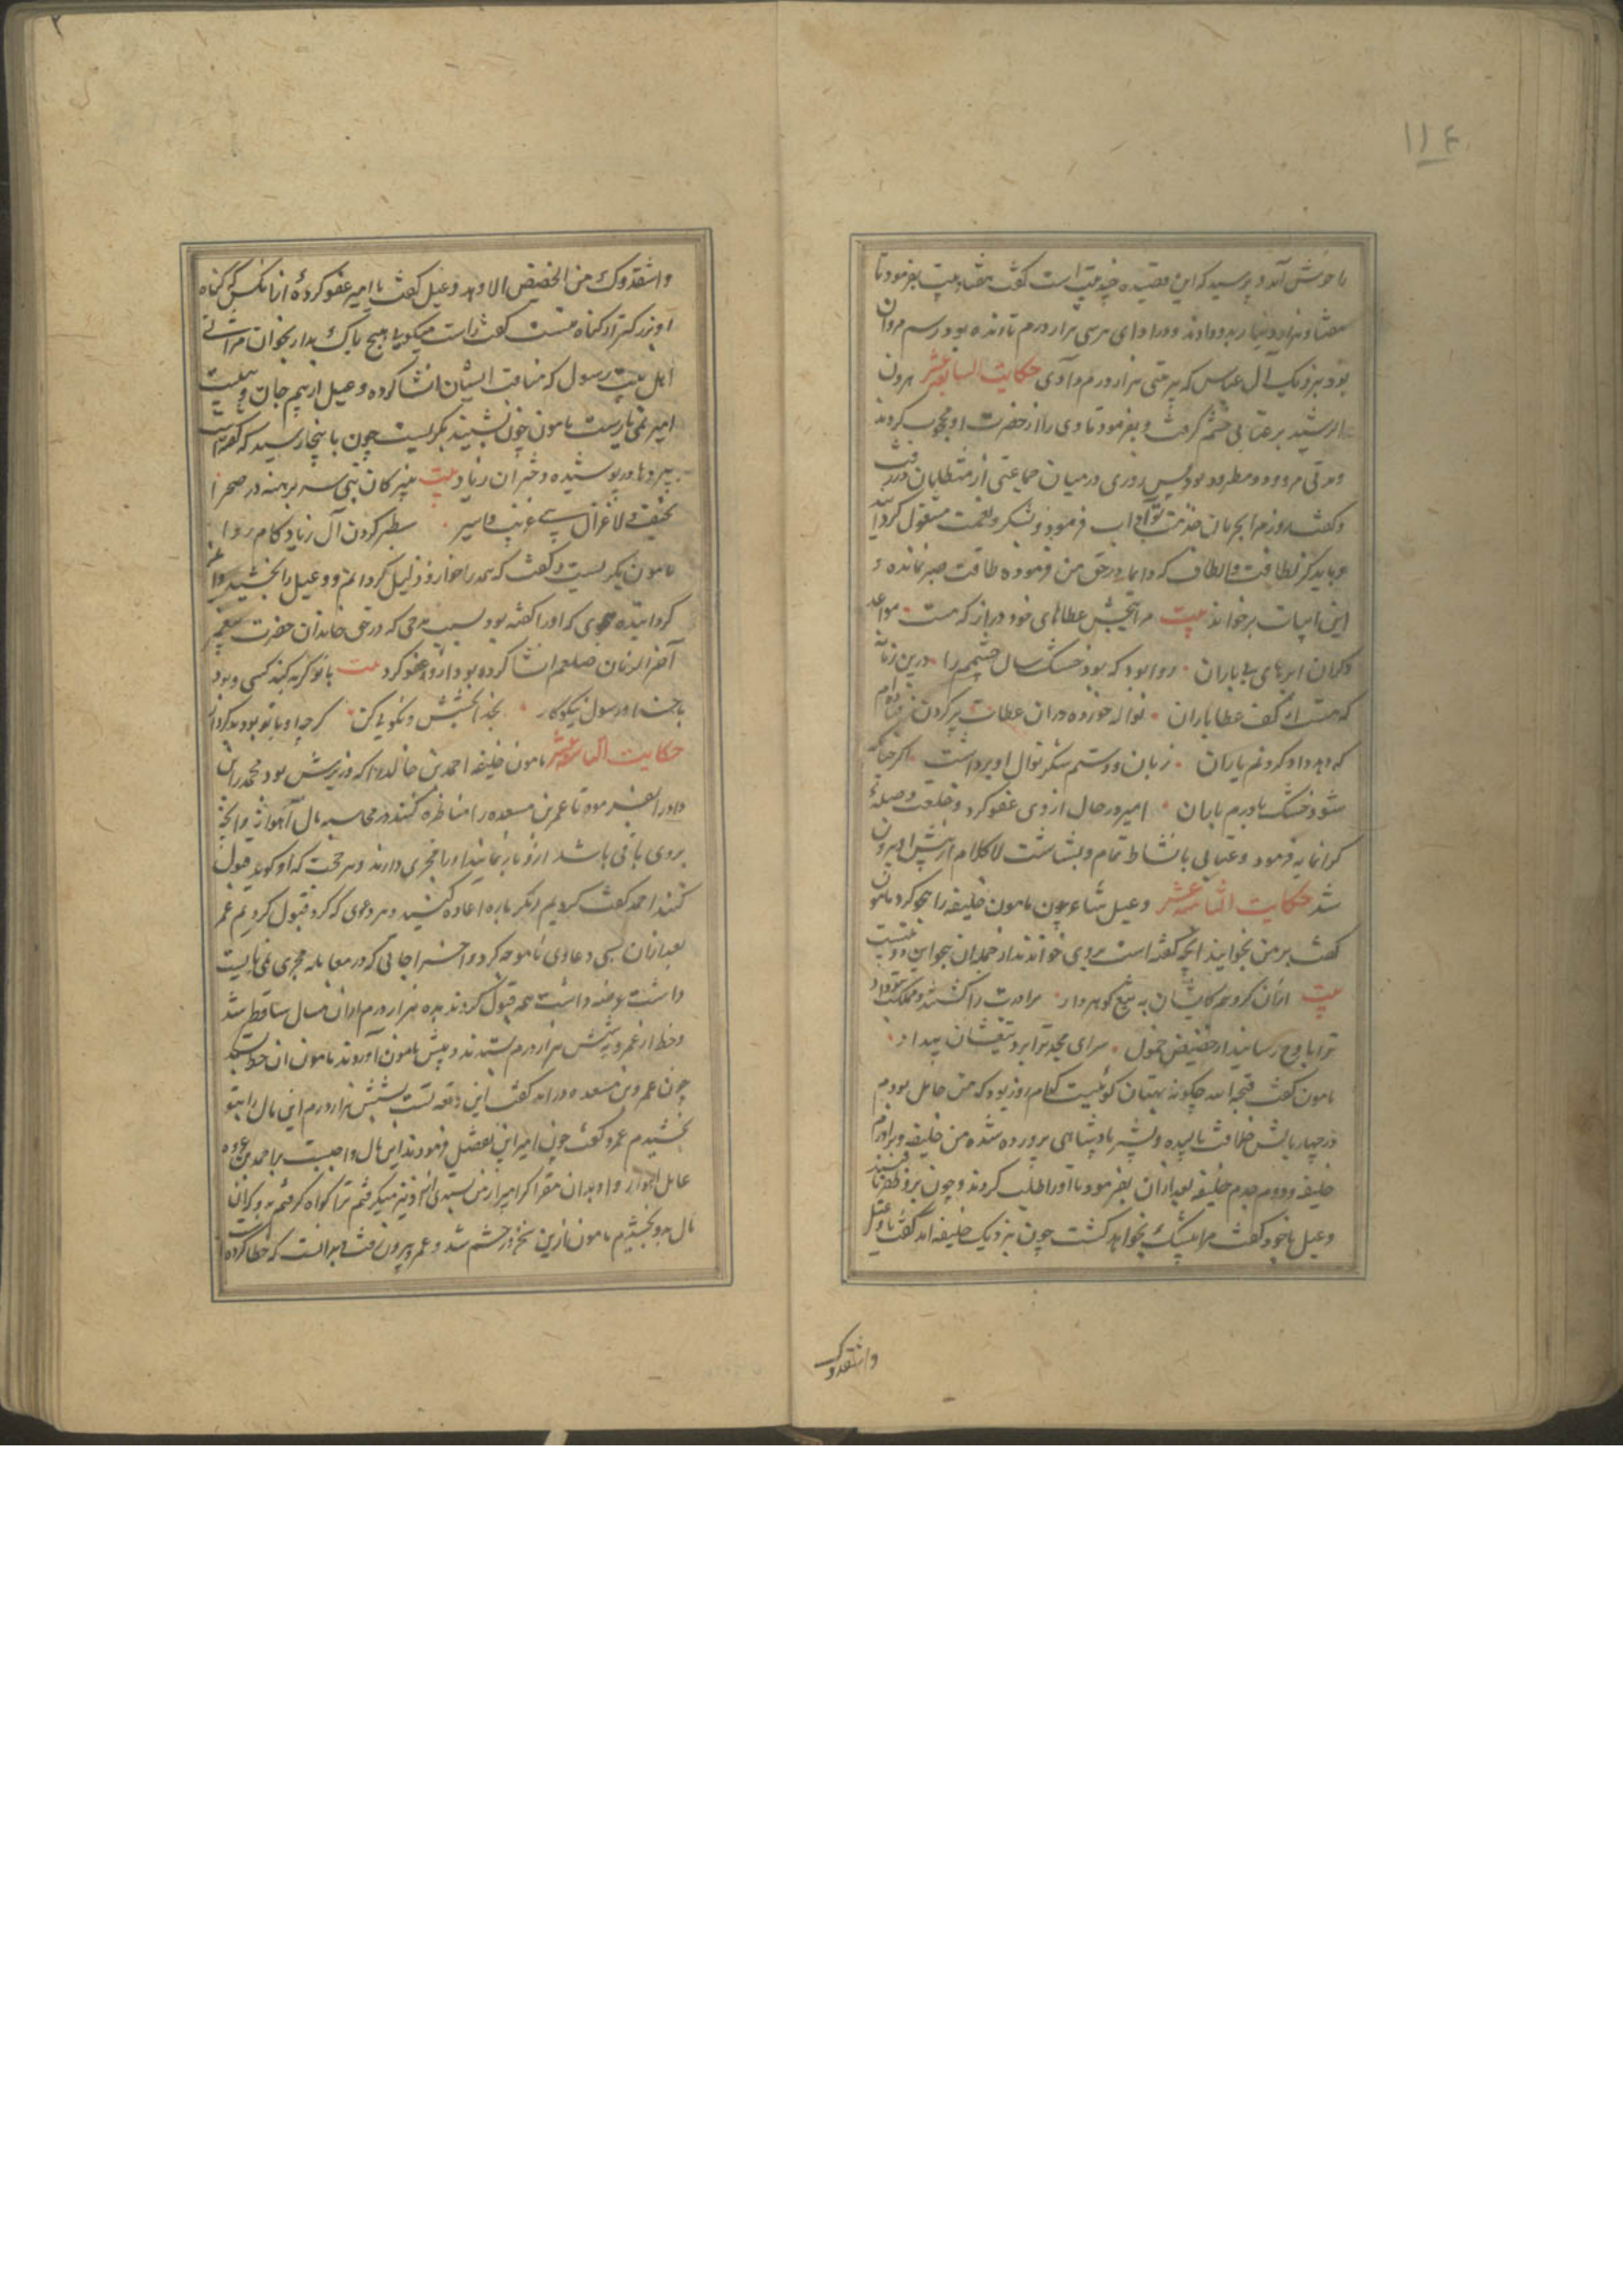 ۱۱۴
را خوش آمد و پرسید که این قصیده چند بیت است گفت هفتاد بیت بفرمود تا
هفتاد هزار دینار بدو دادند و ورا دای هر سی هزار درم تا و نده بود رسم مروان
بود بنزدیک آل عباس که بهر بیتی هزار درم دادی حکایت السابعه عشر هرون
الرشید بر عتابی خشم گرفت و بفرمود تا وی را از حضرت او محجوب کردند
و مدتی مردود و مطرود بود پس روزی در میان جماعتی از متظلمان در رفت
و گفت روزم
این ابیات برخواند بیت مرا بخشش عطاهای خود دراز که هست مواعد
دگران ابرهای بی باران روا بود که بود خشک سال چشمم را درین زمانه
که هست از کف عطا باران نواله خورده در ان عطات پر کردن
که دهد داد کردنم یاران زبان و دستم شکر نوال او برداشت اگر چنانکه
شود خشک بادرم بابان امیر در حال از وی عفو کرد و خلعت و صله
گرانمایه فرمود و عتابی با نشاط تمام و بشاشت لا کلام از پیش او بیرون
شد حکایت الثامنه عشر دعبل شاعر چون مامون خلیفه را هجو کرد مامون
گفت بر من بخوانید انچه گفته است بروی خواندند از جمله ان هجو این دو بیتست
بیت ازان گروهم کایشان به تیغ گوهردار برادرت را کشتند و مملکت بتو داد
ترا باوج رسانید از حضیض خمول سرای مجد ترا بر و تیغشان بنیاد
مامون گفت قبحه الله چگونه بهتان گوئیست کدام روز بود که من خامل بودم
در چهار بالش خلافت بالیده و بشیر پادشاهی پرورده شده من خلیفه و برادرم
خلیفه و پدرم و جدم خلیفه بعد ازان بفرمود تا او را طلب کردند و چون برو ظفر یافتند
دعبل با خود گفت مرا بیشک بخواهد کشت چون بنزدیک خلیفه امد گفت یا دعبل
واشقدوک
واشقدوک من الحضیض الاوهد دعبل گفت یا امیر عفو کرده از انکس که گناه
او بزرگتر از گناه منست گفت راست میگویی هیچ باک مدار بخوان مراثی
اهل بیت رسول که مناقب ایشان انشا کرده دعبل از بیم جان و هیبت
امیر نمی یارست مامون چون بشنید بگریست چون باینجا رسید که گفته است
بپردها در پوشیده دختران زیاد بیت نبیرگان نبی سر برهنه در صحرا
نحیف و لاغر آل نبی غریب و اسیر سطبر گردن آل زیاد کام روا
مامون بگریست و گفت که همه را خوار و ذلیل گردانم و دعبل را بخشید و اغنی
گردانیده هجوی که او را گفته بود بسبب مدحی که در حق خاندان حضرت پیغمبر
آخر الزمان صلعم انشا کرده بود ازو عفو کرد بیت با تو گر بد کند کسی و بود
با خدا و رسول نیکوکار بخدا بخشش و نکویی کن گرچه او با تو بود بد کردار
حکایت التاسعه عشر مامون خلیفه احمد بن خالد را که وزیرش بود محمد را بن
داود را بفرمود تا عمر بن مسعده را مناظره کنند در محاسبه مال آهواز و انچه
بروی باقی باشد ازو باز نمایند او را مجری دارند و هر حجت که او گوید قبول
کنند احمد گفت کردیم دیگر باره اعاده کنید و هر دعوی که کرد قبول کردیم عمر
بعد ازان بسی دعاوی ناموجه کرد و اخراجاتی که در معامله مجری نمی بایست
داشت عرضه داشت همه قبول کردند ده هزار درم ازان مال ساقط شد
و خط از عمر و به شش هزار درم بستدند و پیش مامون آوردند مامون ان خط بستد
چون عمرو بن مسعده درامد گفت این رقعه تست بشش هزار درم این مال را بتو
بخشیدم عمرو گفت چون امیر این تفضل فرمودند این مال واجبست بر احمد بن عروه
عامل اهواز و او بدان مقر اگر امیر از من بستدی من ازو نیز میگرفتم ترا گواه گرفتم برو که این
مال بدو بخشیدم مامون ازین سخن در خشم شد و عمرو بیرون رفت و بدانست که خطا کرده است